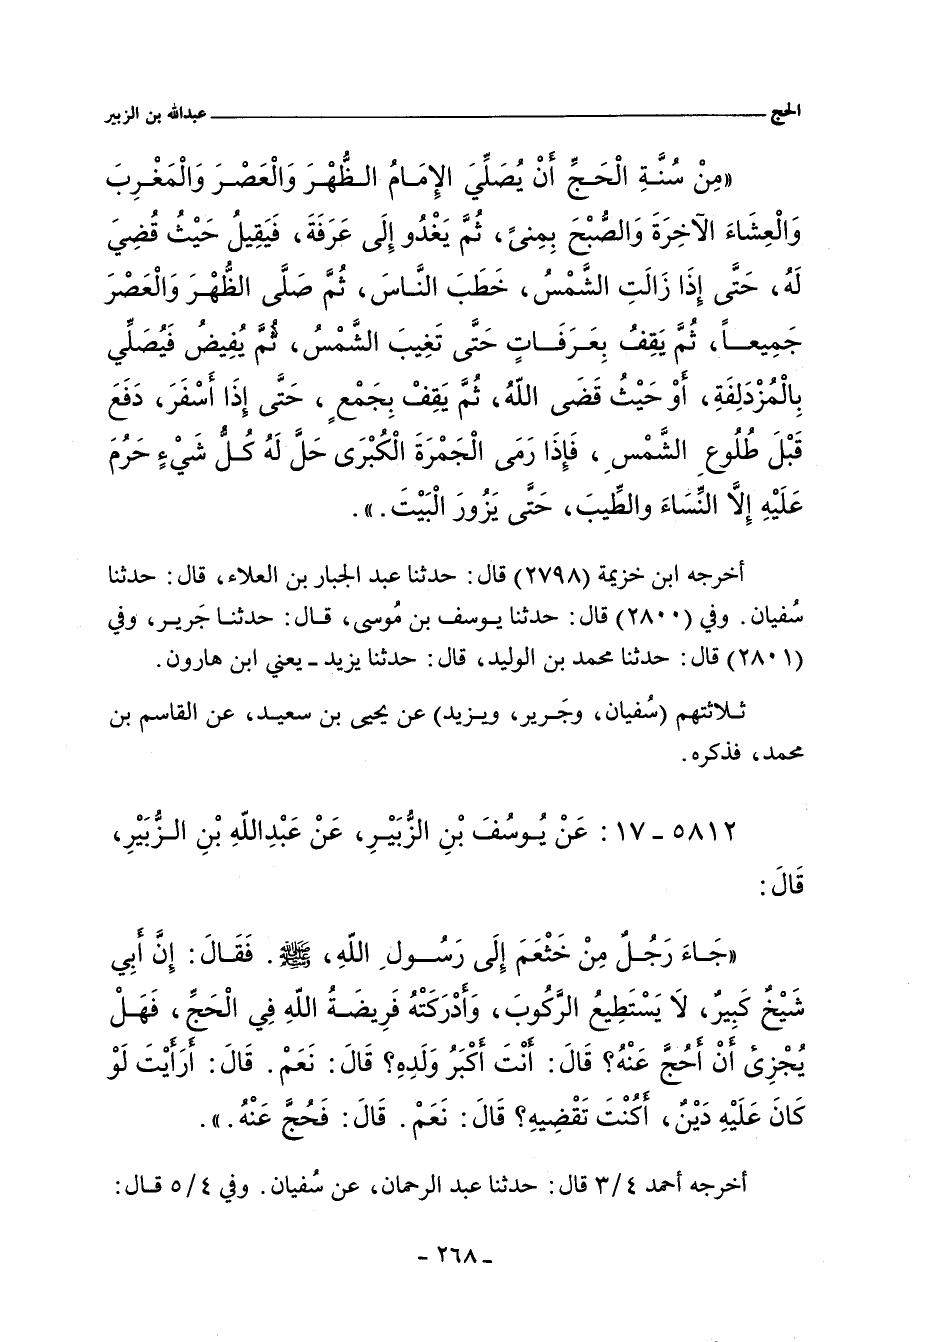 الحج عبدالله بن الزبير
«مِنْ سُنَّةِ الْحَجِّ أَنْ يُصَلِّيَ الإِمَامُ الظُّهْرَ وَالْعَصْرَ وَالْمَغْرِبَ
وَالْعِشَاءَ الآخِرَةَ وَالصُّبْحَ بِمِنىً، ثُمَّ يَغْدُو إِلَى عَرَفَةَ، فَيَقِيلُ حَيْثُ قُضِيَ
لَهُ، حَتَّى إِذَا زَالَتِ الشَّمْسُ، خَطَبَ النَّاسَ، ثُمَّ صَلَّى الظُّهْرَ وَالْعَصْرَ
جَمِيعاً، ثُمَّ يَقِفُ بِعَرَفَاتٍ حَتَّى تَغِيبَ الشَّمْسُ، ثُمَّ يُفِيضُ فَيُصَلِّي
بِالْمُزْدَلِفَةِ، أَوْ حَيْثُ قَضَى اللَّهُ، ثُمَّ يَقِفُ بِجَمْعٍ، حَتَّى إِذَا أَسْفَرَ، دَفَعَ
قَبْلَ طُلُوعِ الشَّمْسِ، فَإِذَا رَمَى الْجَمْرَةَ الْكُبْرَى حَلَّ لَهُ كُلُّ شَيْءٍ حَرُمَ
عَلَيْهِ إِلَّا النِّسَاءَ والطِّيبَ، حَتَّى يَزُورَ الْبَيْتَ.».
أخرجه ابن خزيمة (٢٧٩٨) قال: حدثنا عبد الجبار بن العلاء، قال: حدثنا
سُفيان. وفي (٢٨٠٠) قال: حدثنا يوسف بن مُوسى، قال: حدثنا جَرير، وفي
(٢٨٠١) قال: حدثنا محمد بن الوليد، قال: حدثنا يزيد ـ يعني ابن هارون.
ثلاثتهم (سُفيان، وجَرير، ويزيد) عن يحيى بن سعيد، عن القاسم بن
محمد، فذكره.
٥٨١٢ ـ ١٧ : عَنْ يُوسُفَ بْنِ الزُّبَيْرِ، عَنْ عَبْدِاللَّهِ بْنِ الزُّبَيْرِ،
قَالَ:
«جَاءَ رَجُلٌ مِنْ خَثْعَمَ إِلَى رَسُولِ اللَّهِ، ﷺ. فَقَالَ: إِنَّ أَبِي
شَيْخٌ كَبِيرٌ، لَا يَسْتَطِيعُ الرَّكُوبَ، وَأَدْرَكَتْهُ فَرِيضَةُ اللَّهِ فِي الْحَجِّ، فَهَلْ
يُجْزِئُ أَنْ أَحُجَّ عَنْهُ؟ قَالَ: أَنْتَ أَكْبَرُ وَلَدِهِ؟ قَالَ: نَعَمْ. قَالَ: أَرَأَيْتَ لَوْ
كَانَ عَلَيْهِ دَيْنٌ، أَكُنْتَ تَقْضِيهِ؟ قَالَ: نَعَمْ. قَالَ: فَحُجَّ عَنْهُ.».
أخرجه أحمد ٣/٤ قال: حدثنا عبد الرحمان، عن سُفيان. وفي ٥/٤ قال:
ـ ٢٦٨ ـ